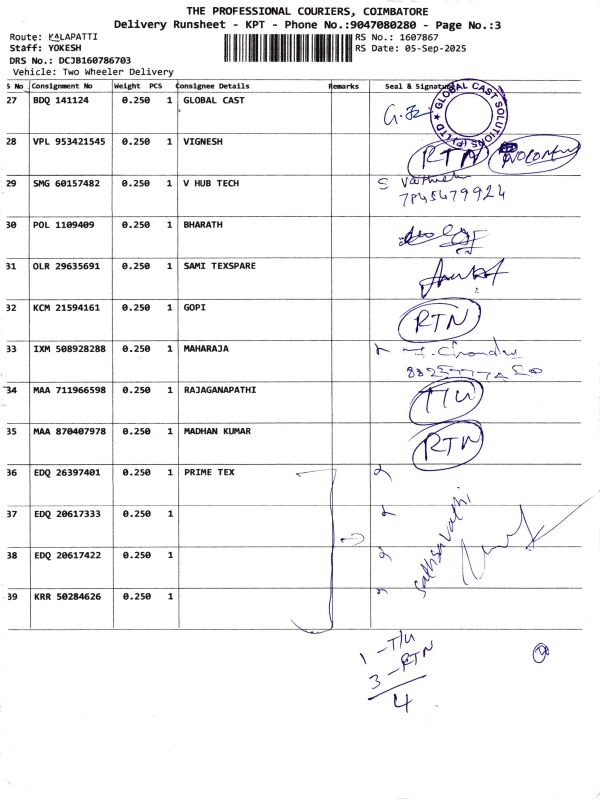 THE PROFESSIONAL COURIERS, COIMBATORE
Delivery Runsheet - KPT - Phone No.:9047080280 - Page No.:3
Route: KALAPATTI
RS No.: 1607867
Staff: YOKESH
RS Date: 05-Sep-2025
DRS No.: DCJB160786703
Vehicle: Two Wheeler Delivery
S No Consignment No Weight PCS Consignee Details Remarks Seal & Signature
27 BDQ 141124 0.250 1 GLOBAL CAST
GLOBAL CAST SOLUTIONS (P) LTD
28 VPL 953421545 0.250 1 VIGNESH RTN
29 SMG 60157482 0.250 1 V HUB TECH
7845479924
30 POL 1109409 0.250 1 BHARATH
31 OLR 29635691 0.250 1 SAMI TEXSPARE
32 KCM 21594161 0.250 1 GOPI RTN
33 IXM 508928288 0.250 1 MAHARAJA
34 MAA 711966598 0.250 1 RAJAGANAPATHI T/U
35 MAA 870407978 0.250 1 MADHAN KUMAR RTN
36 EDQ 26397401 0.250 1 PRIME TEX
37 EDQ 20617333 0.250 1
38 EDQ 20617422 0.250 1
39 KRR 50284626 0.250 1
1 - T/U
3 - RTN
4